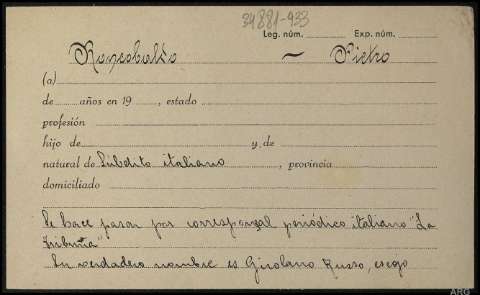 34881-933
Leg. núm. Exp. núm.
~ Pietro
(a)
de años en 19 , estado
profesión
hijo de y de
natural de Súbdito italiano , provincia
domiciliado
Se hace pasar por corresponsal periódico italiano "La
Tribuna"
Su verdadero nombre es Girolano Russo,
ARG